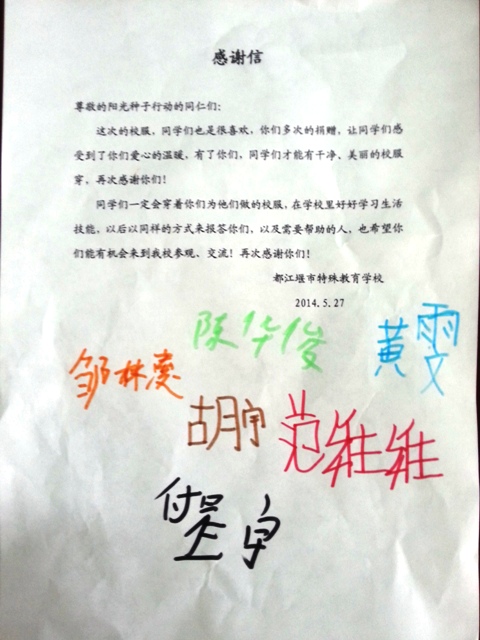 感谢信
尊敬的阳光种子行动的同仁们：
这次的校服，同学们也是很喜欢，你们多次的捐赠，让同学们感
受到了你们爱心的温暖，有了你们，同学们才能有干净、美丽的校服
穿，再次感谢你们！
同学们一定会穿着你们为他们做的校服，在学校里好好学习生活
技能，以后以同样的方式来报答你们，以及需要帮助的人，也希望你
们能有机会来到我校参观、交流！再次感谢你们！
都江堰市特殊教育学校
2014.5.27
陈华俊
黄雯
邹林凌
胡宇
范雅雅
堡宇